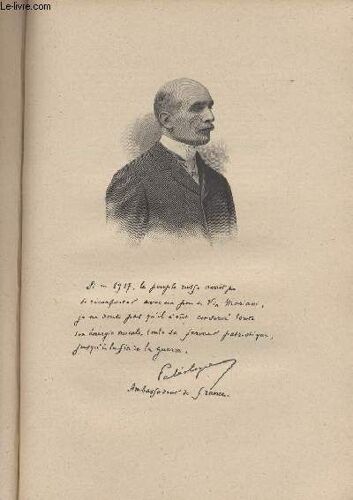 Le-livre.com
Si en 1917, le peuple russe avait pu
se réconforter avec un peu de Vin Mariani,
je ne doute pas qu'il n'eût conservé toute
son énergie morale, toute sa ferveur patriotique,
jusqu'à la fin de la guerre.
Paléologue
Ambassadeur de France.